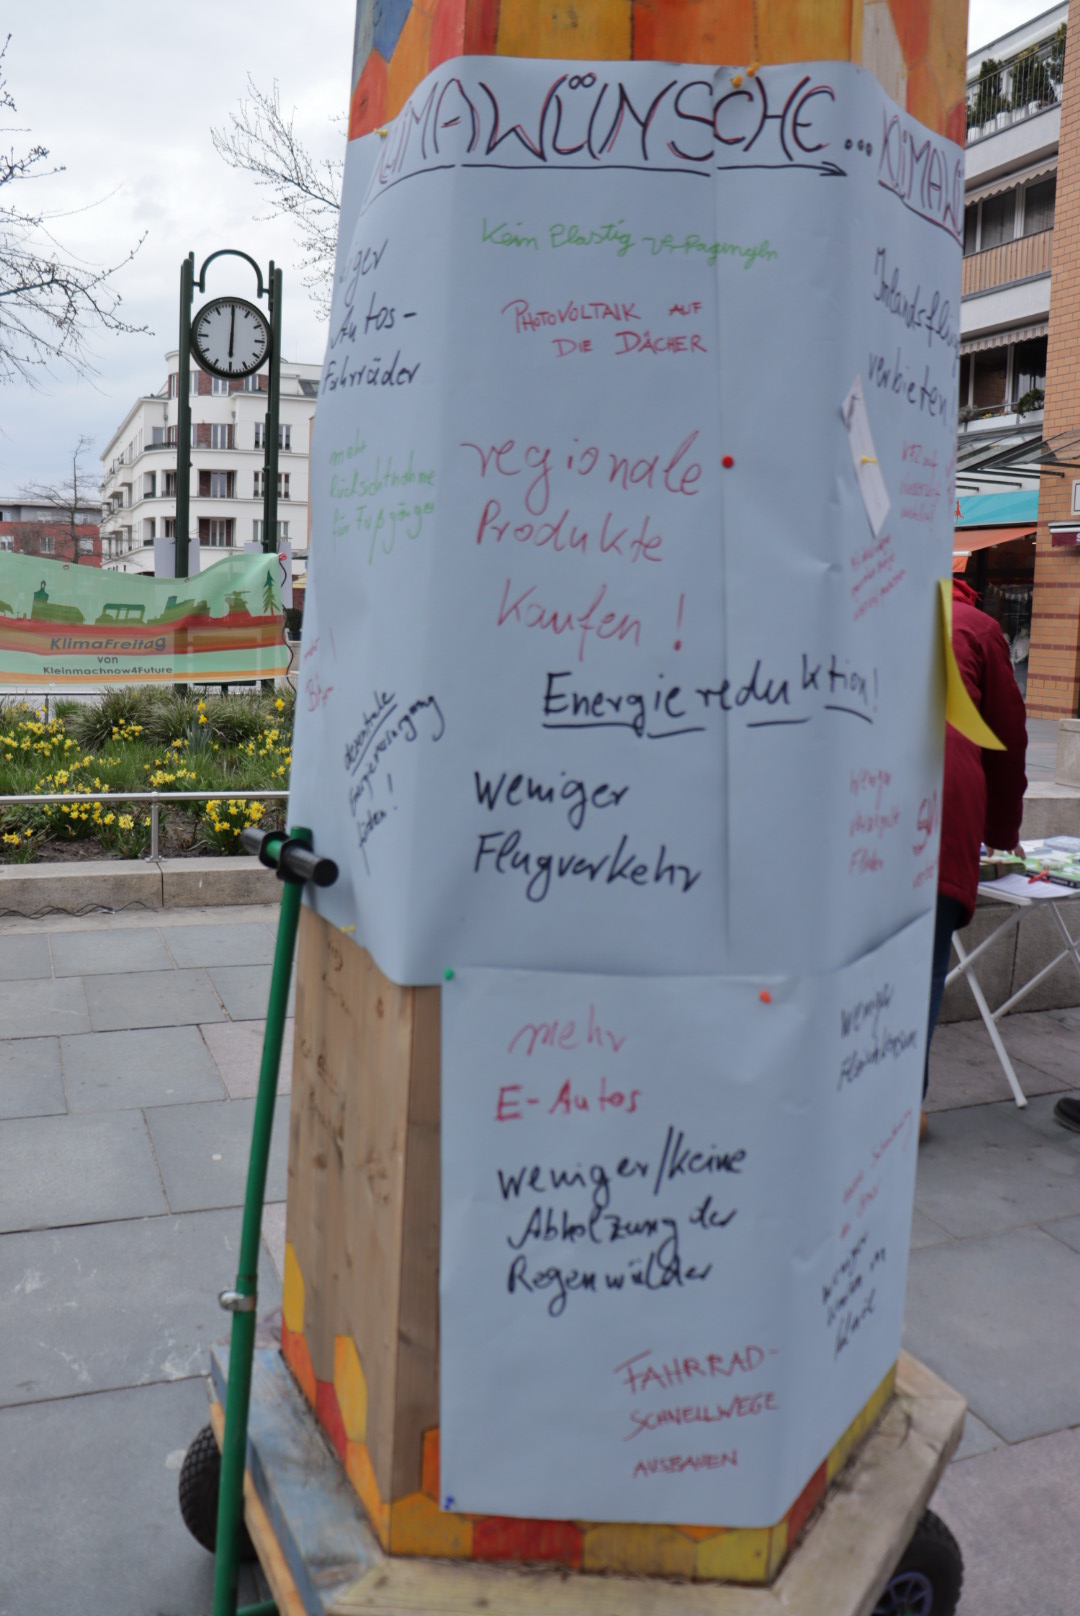 KLIMAWÜNSCHE... KLIMAWÜ
Kein Plastig Verpagungeln
PHOTOVOLTAIK AUF
DIE DÄCHER
regionale
Produkte
Kaufen!
Energiereduktion!
Weniger
Flugverkehr
iger
Autos-
Fahrräder
mehr
Rücksichtnahme
für Fußgänger
dezentrale
Inlandsflüg
verbieten
weniger
mehr
E-Autos
Weniger/keine
Abholzung der
Regenwälder
FAHRRAD-
SCHNELLWEGE
AUSBAUEN
weniger
KlimaFreitaG
von
Kleinmachnow4Future